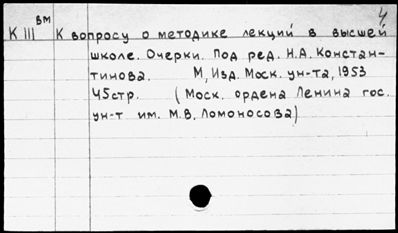 4
К III вм К вопросу о методике лекций в высшей
школе. Очерки. Под ред. Н.А. Констан-
тинова. М, Изд. Моск. ун-та, 1953
45стр. (Моск. ордена Ленина гос.
ун-т им. М.В. Ломоносова)